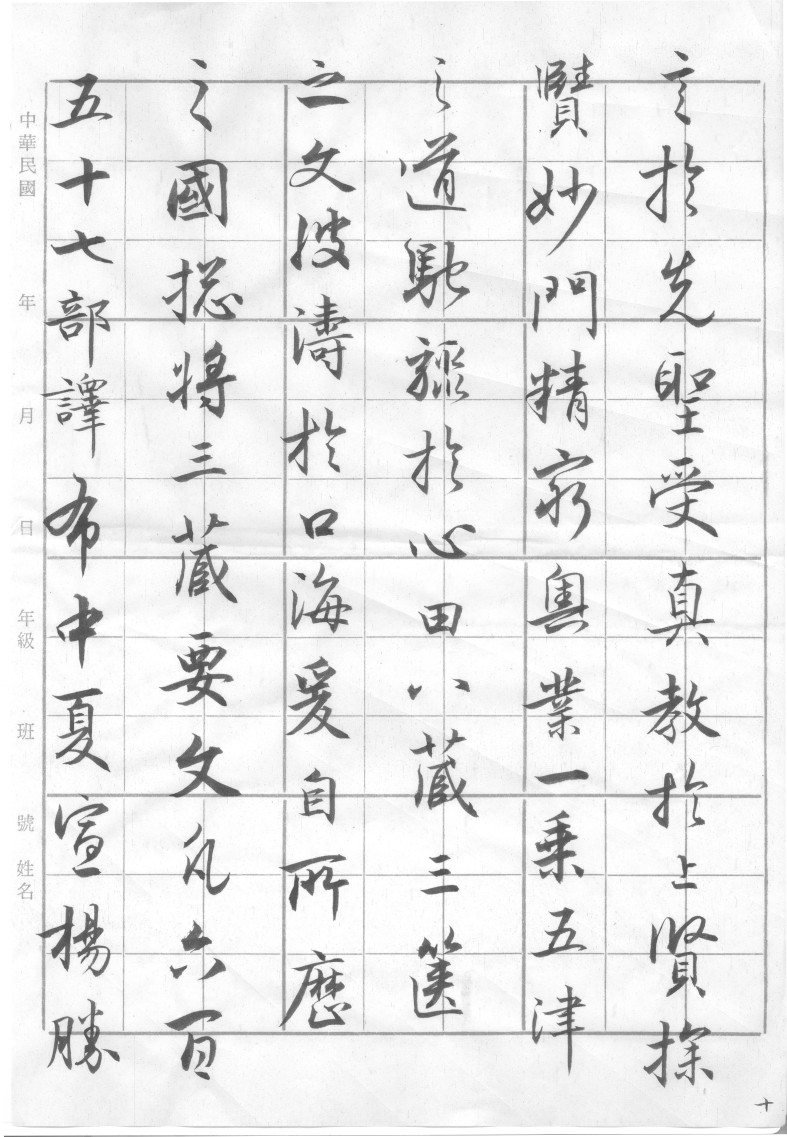 言於先聖受真教於上賢探
賾妙門精窮奧業一乘五津
之道馳驟於心田八藏三篋
之文波濤於口海爰自所歷
之國揔將三藏要文凡六百
五十七部譯布中夏宣揚勝
中華民國 年 月 日 年級 班 號 姓名
十